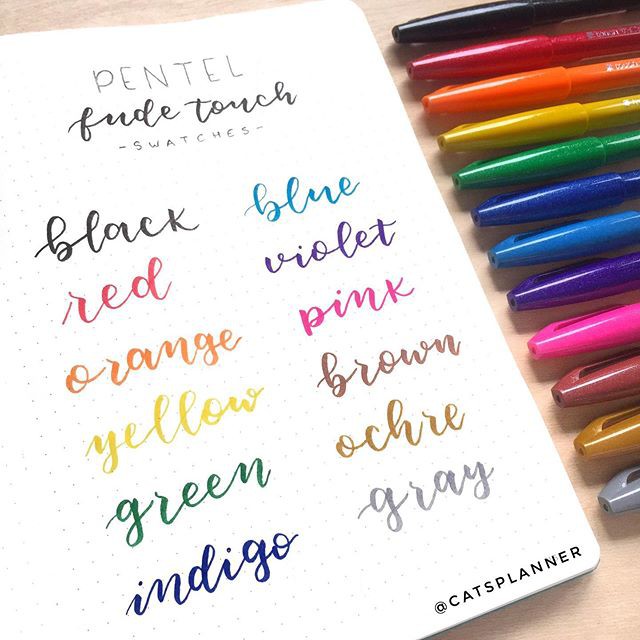 PENTEL
fude touch
-SWATCHES-
black
red
orange
yellow
green
indigo
blue
violet
pink
brown
ochre
gray
@CATSPLANNER